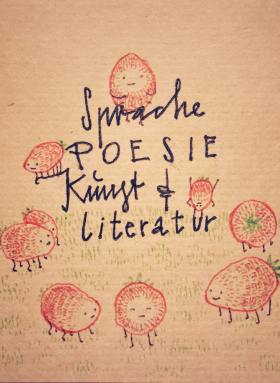 Sprache
POESIE
Kunst &
literatur